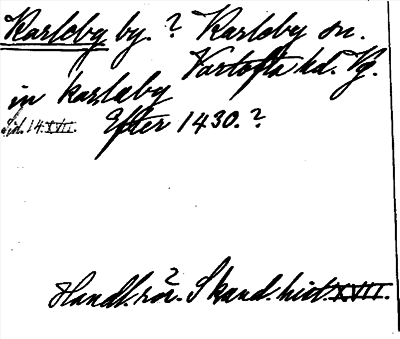 Karleby by. ? Karleby sn.
Vartofta hd. Vg.
in karlæby
Sid. 14. XVII. Efter 1430. ?
Handl. rör. Skand. hist. XVII.
?